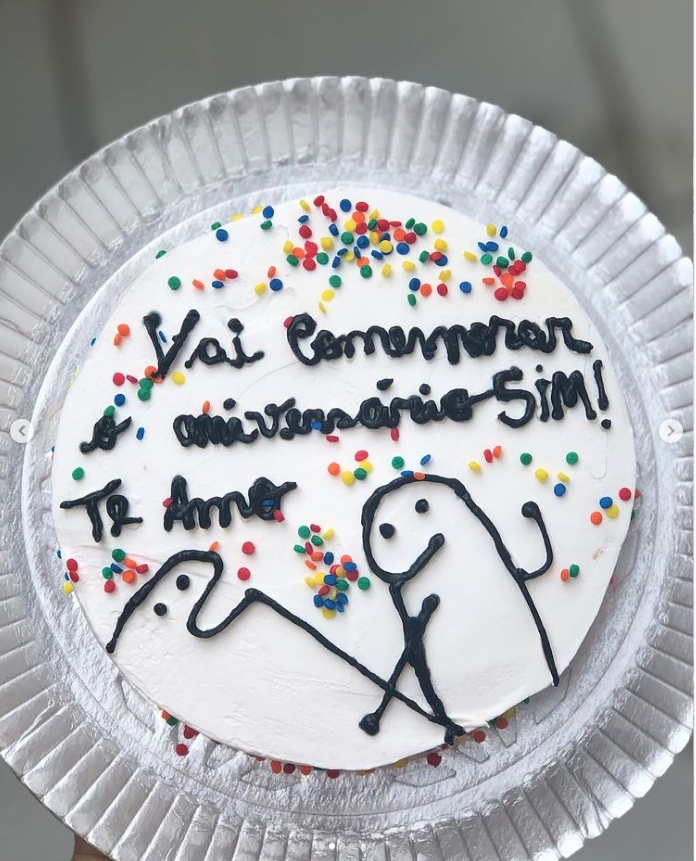 Vai Comemorar
o aniversário SiM!
Te Amo